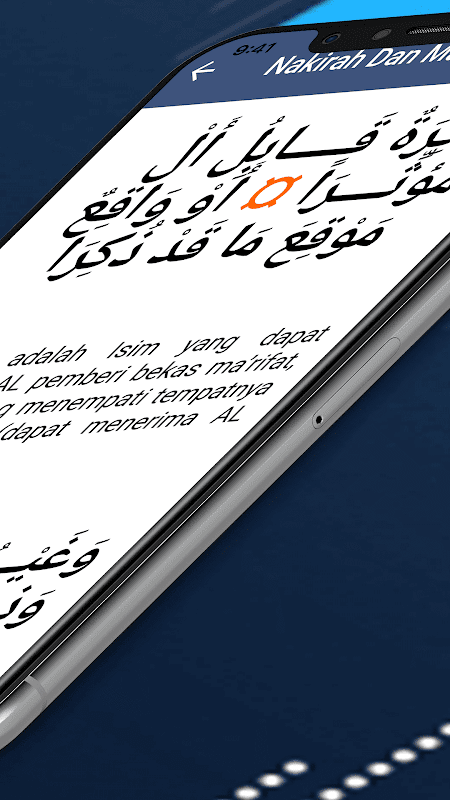 9:41
Nakirah Dan M
ـرَةٌ قَــابِلُ أَلْ
مُؤَثِّــرًا ¤ أَوْ وَاقِعٌ
مَوْقِعَ مَا قَدْ ذُكِرَا
adalah Isim yang dapat
AL pemberi bekas ma'rifat,
menempati tempatnya
(dapat menerima AL
وَغَيْـ